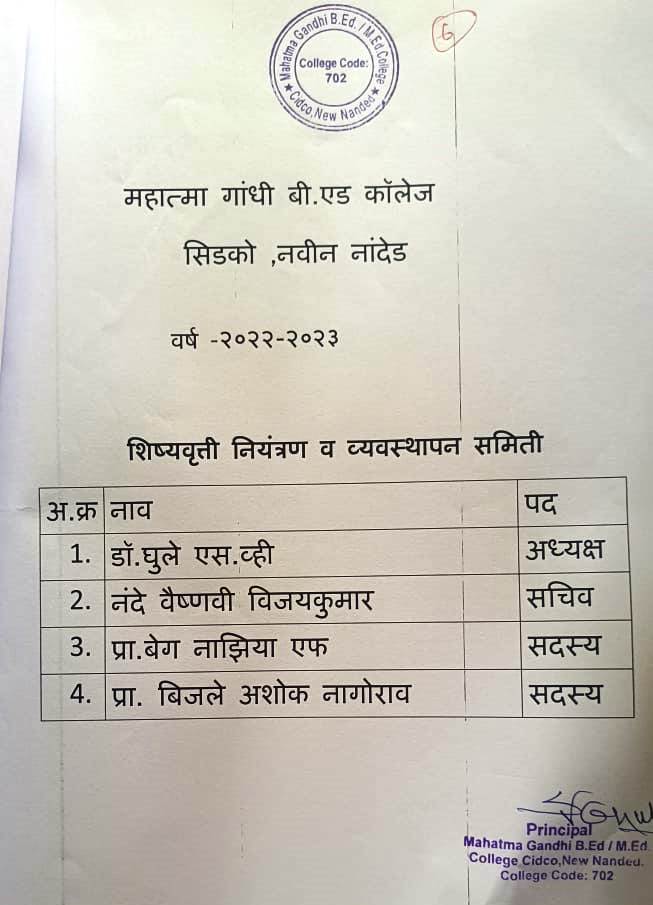 Mahatma Gandhi B.Ed. / M.Ed College
College Code:
702
★ Cidco, New Nanded ★
6
महात्मा गांधी बी.एड कॉलेज
सिडको ,नवीन नांदेड
वर्ष -२०२२-२०२३
शिष्यवृत्ती नियंत्रण व व्यवस्थापन समिती
अ.क्र नाव पद
1. डॉ.घुले एस.व्ही अध्यक्ष
2. नंदे वैष्णवी विजयकुमार सचिव
3. प्रा.बेग नाझिया एफ सदस्य
4. प्रा. बिजले अशोक नागोराव सदस्य
Principal
Mahatma Gandhi B.Ed / M.Ed.
College Cidco,New Nanded.
College Code: 702